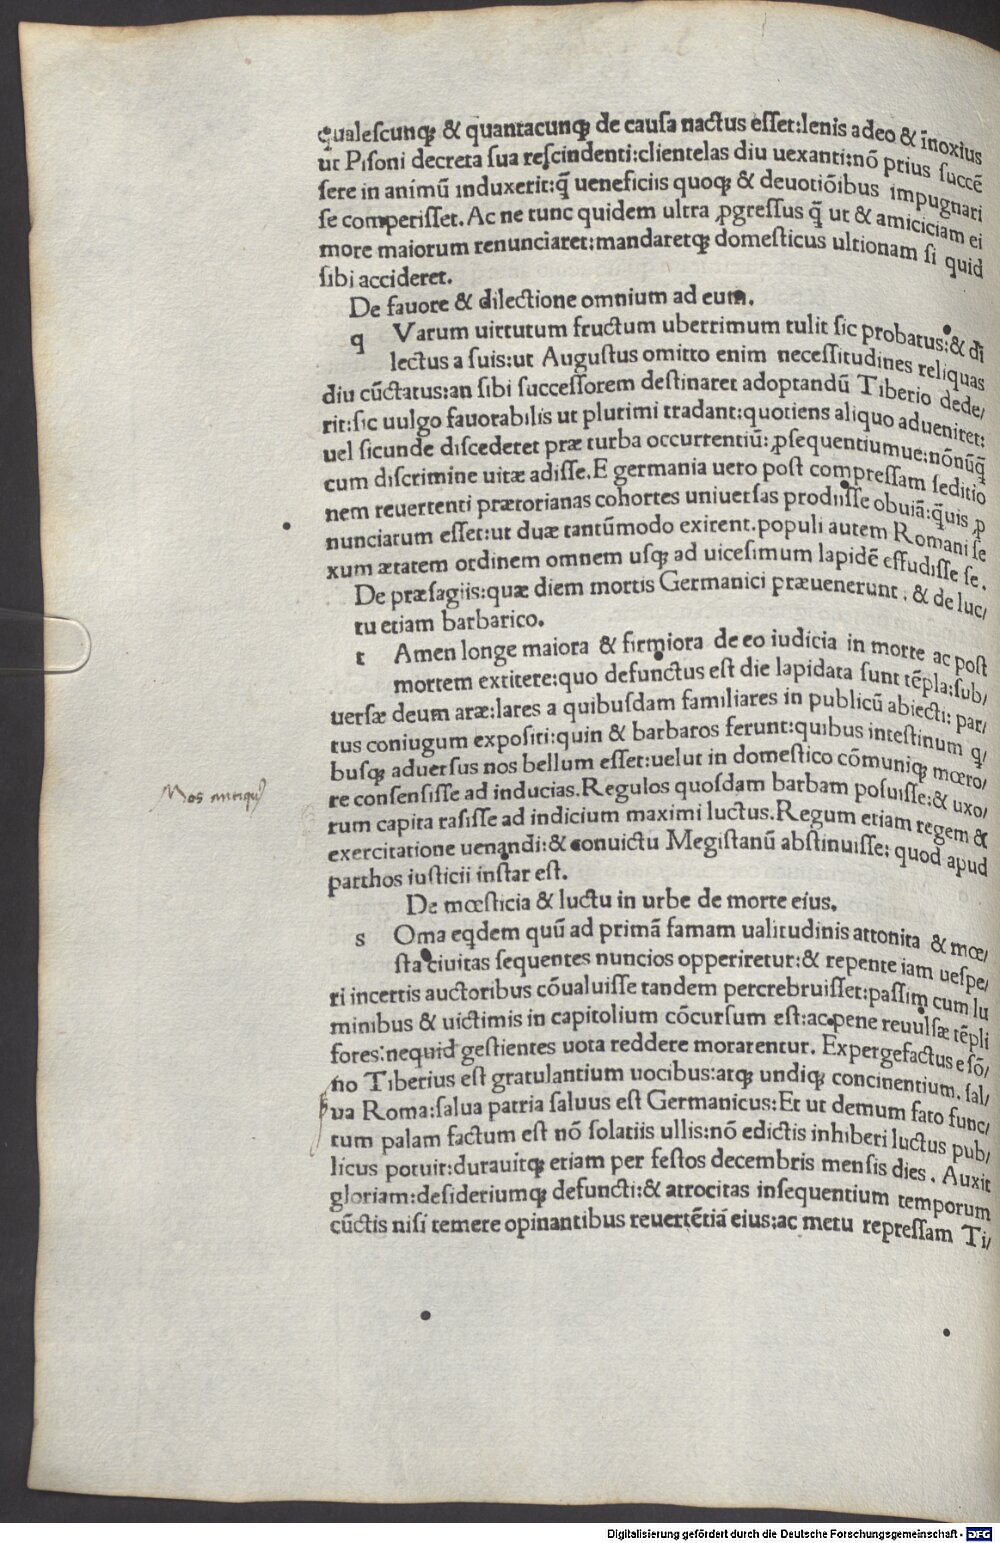 qualescunqꝫ & quantacunqꝫ de causa nactus esset:lenis adeo & ĩnoxius
ut Pisoni decreta sua rescindenti:clientelas diu uexanti:nõ prius succẽ
sere in animũ induxerit:q̃ ueneficiis quoqꝫ & deuotiõibus impugnari
se comperisset. Ac ne tunc quidem ultra ꝓgressus q̃ ut & amiciciam ei
more maiorum renunciaret:mandaretqꝫ domesticus ultionam si quid
sibi accideret.
De fauore & dilectione omnium ad eum.
q Varum uirtutum fructum uberrimum tulit sic probatus:& di
lectus a suis:ut Augustus omitto enim necessitudines reliquas
diu cũctatus:an sibi successorem destinaret adoptandũ Tiberio dede/
rit:sic uulgo fauorabilis ut plurimi tradant:quotiens aliquo adueniret:
uel sicunde discederet præ turba occurrentiũ:ꝓsequentiumue:nõnũq̃
cum discrimine uitæ adisse.E germania uero post compressam seditio
nem reuertenti prætorianas cohortes uniuersas prodiisse obuiã:q̃uis ꝓ
nunciatum esset:ut duæ tantũmodo exirent.populi autem Romani se
xum ætatem ordinem omnem usqꝫ ad uicesimum lapidẽ effudisse se.
De præsagiis:quæ diem mortis Germanici præuenerunt. & de luc/
tu etiam barbarico.
t Amen longe maiora & firmiora de eo iudicia in morte ac post
mortem extitere:quo defunctus est die lapidata sunt tẽpla:sub/
uersæ deum aræ:lares a quibusdam familiares in publicũ abiecti: par/
tus coniugum expositi:quin & barbaros ferunt:quibus intestinum q/
busqꝫ aduersus nos bellum esset:uelut in domestico cõmuniqꝫ mœro/
re consensisse ad inducias.Regulos quosdam barbam posuisse:& uxo/
rum capita rasisse ad indicium maximi luctus.Regum etiam regem &
Mos antiqu9
exercitatione uenandi:& conuictu Megistanũ abstinuisse: quod apud
parthos iusticii instar est.
De mœsticia & luctu in urbe de morte eius.
s Oma eqdem quũ ad primã famam ualitudinis attonita & mœ/
sta ciuitas sequentes nuncios opperiretur:& repente iam uespe/
ri incertis auctoribus cõualuisse tandem percrebruisset:passim cum lu
minibus & uictimis in capitolium cõcursum est:ac pene reuulsæ tẽpli
fores:nequid gestientes uota reddere morarentur. Expergefactus e sõ/
no Tiberius est gratulantium uocibus:atqꝫ undiqꝫ concinentium. sal/
ua Roma:salua patria saluus est Germanicus:Et ut demum fato func/
tum palam factum est nõ solatiis ullis:nõ edictis inhiberi luctus pub/
licus potuit:durauitqꝫ etiam per festos decembris mensis dies. Auxit
gloriam:desideriumqꝫ defuncti:& atrocitas insequentium temporum
cũctis nisi temere opinantibus reuertẽtiã eius:ac metu repressam Ti/
Digitalisierung gefördert durch die Deutsche Forschungsgemeinschaft - DFG